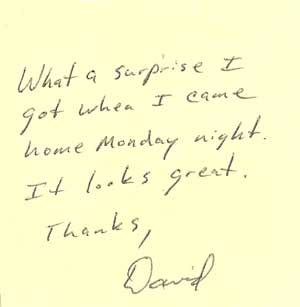 What a surprise I
got when I came
home Monday night.
It looks great.
Thanks,
David